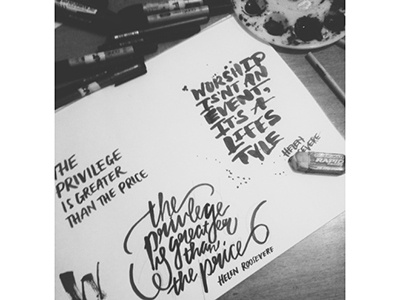 "WORSHIP
ISN'T AN
EVENT,
IT'S A
LIFES
TYLE
HELEN
THE
PRIVILEGE
IS GREATER
THAN THE PRICE
the
privilege
is greater
than
the price
HELEN ROOSEVERE
RAPID